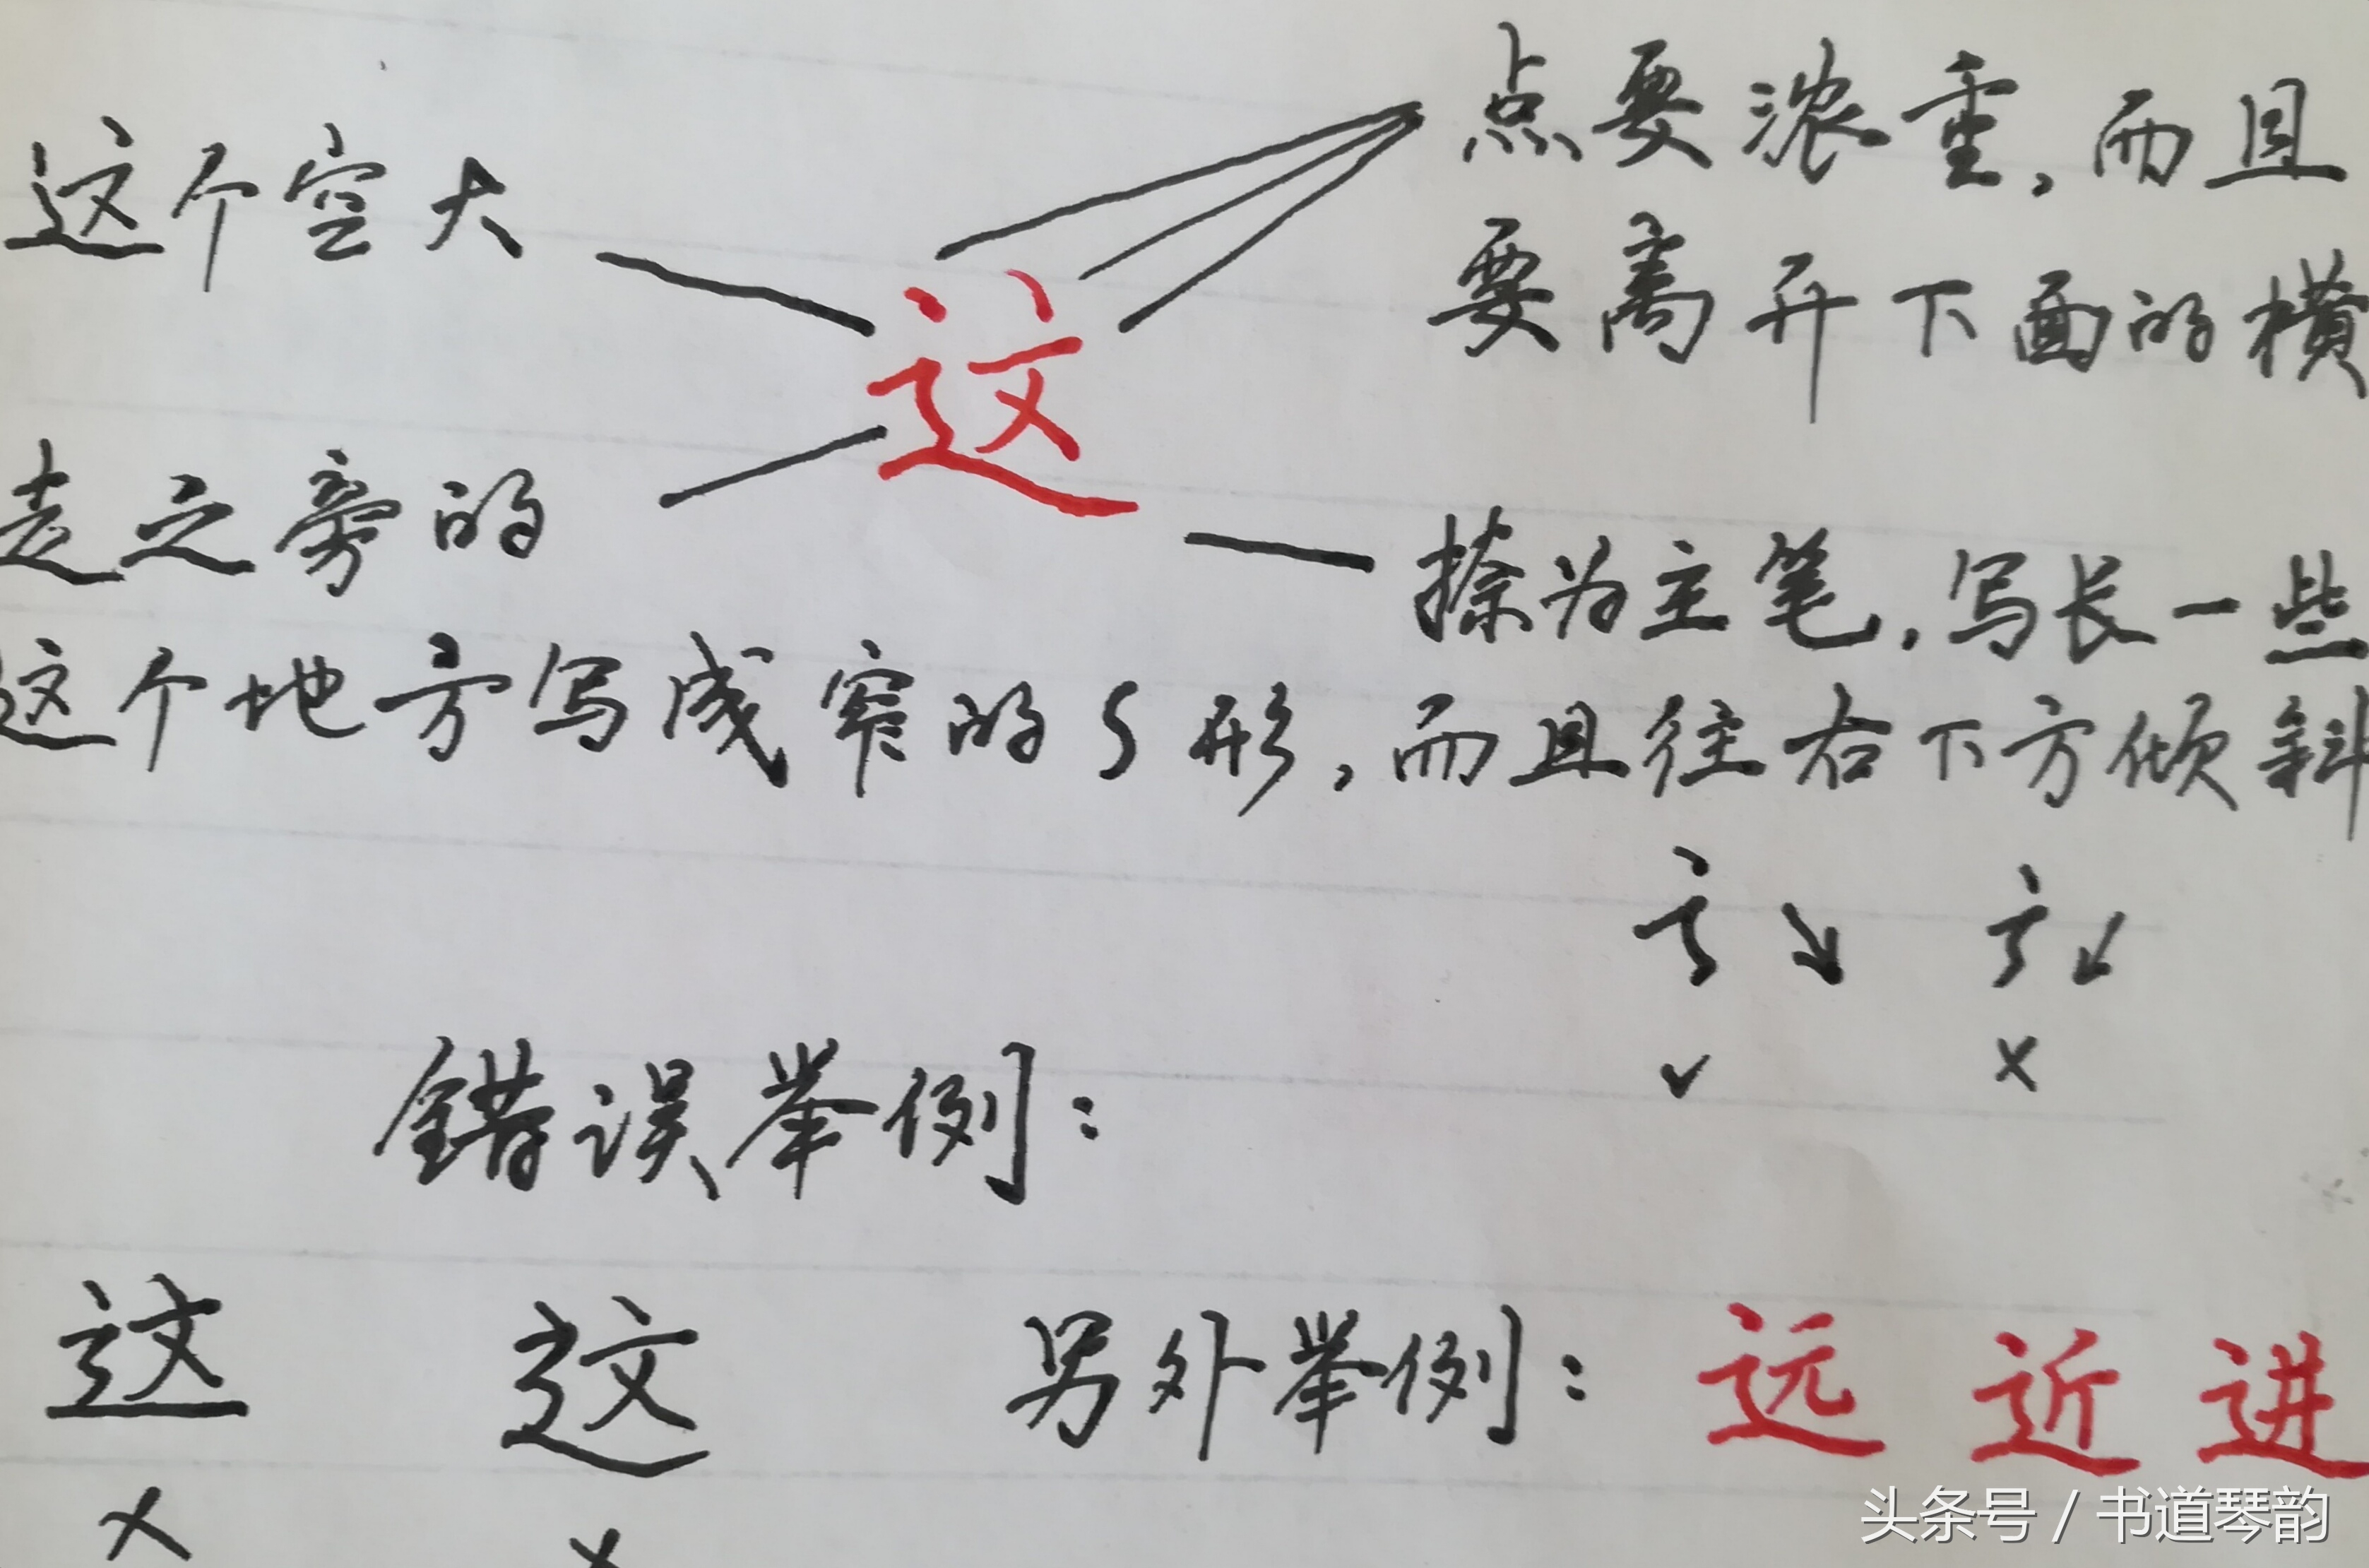 这个空大
点要浓重,而且
要离开下面的横
这
走之旁的
捺为主笔,写长一些
这个地方写成窄的S形,而且往右下方倾斜
✓ ×
错误举例:
这 这 另外举例: 远 近 进
× ×
头条号 / 书道琴韵